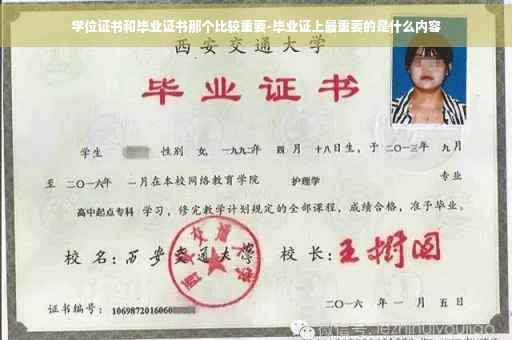 学位证书和毕业证书那个比较重要-毕业证上最重要的是什么内容
西安交通大学
毕业证书
学生 性别 女, 一九九二年 四 月 十八日生, 于 二〇一三年 九月
至 二〇一六年 一月在本校网络教育学院 护理学 专业
高中起点专科 学习, 修完教学计划规定的全部课程, 成绩合格, 准予毕业。
校 名: 西安交通大学 校 长: 王树国
西安交通大学
二〇一六 年 一 月 五 日
证书编号: 1069872016060
微信号: jezhihuiyoujiao